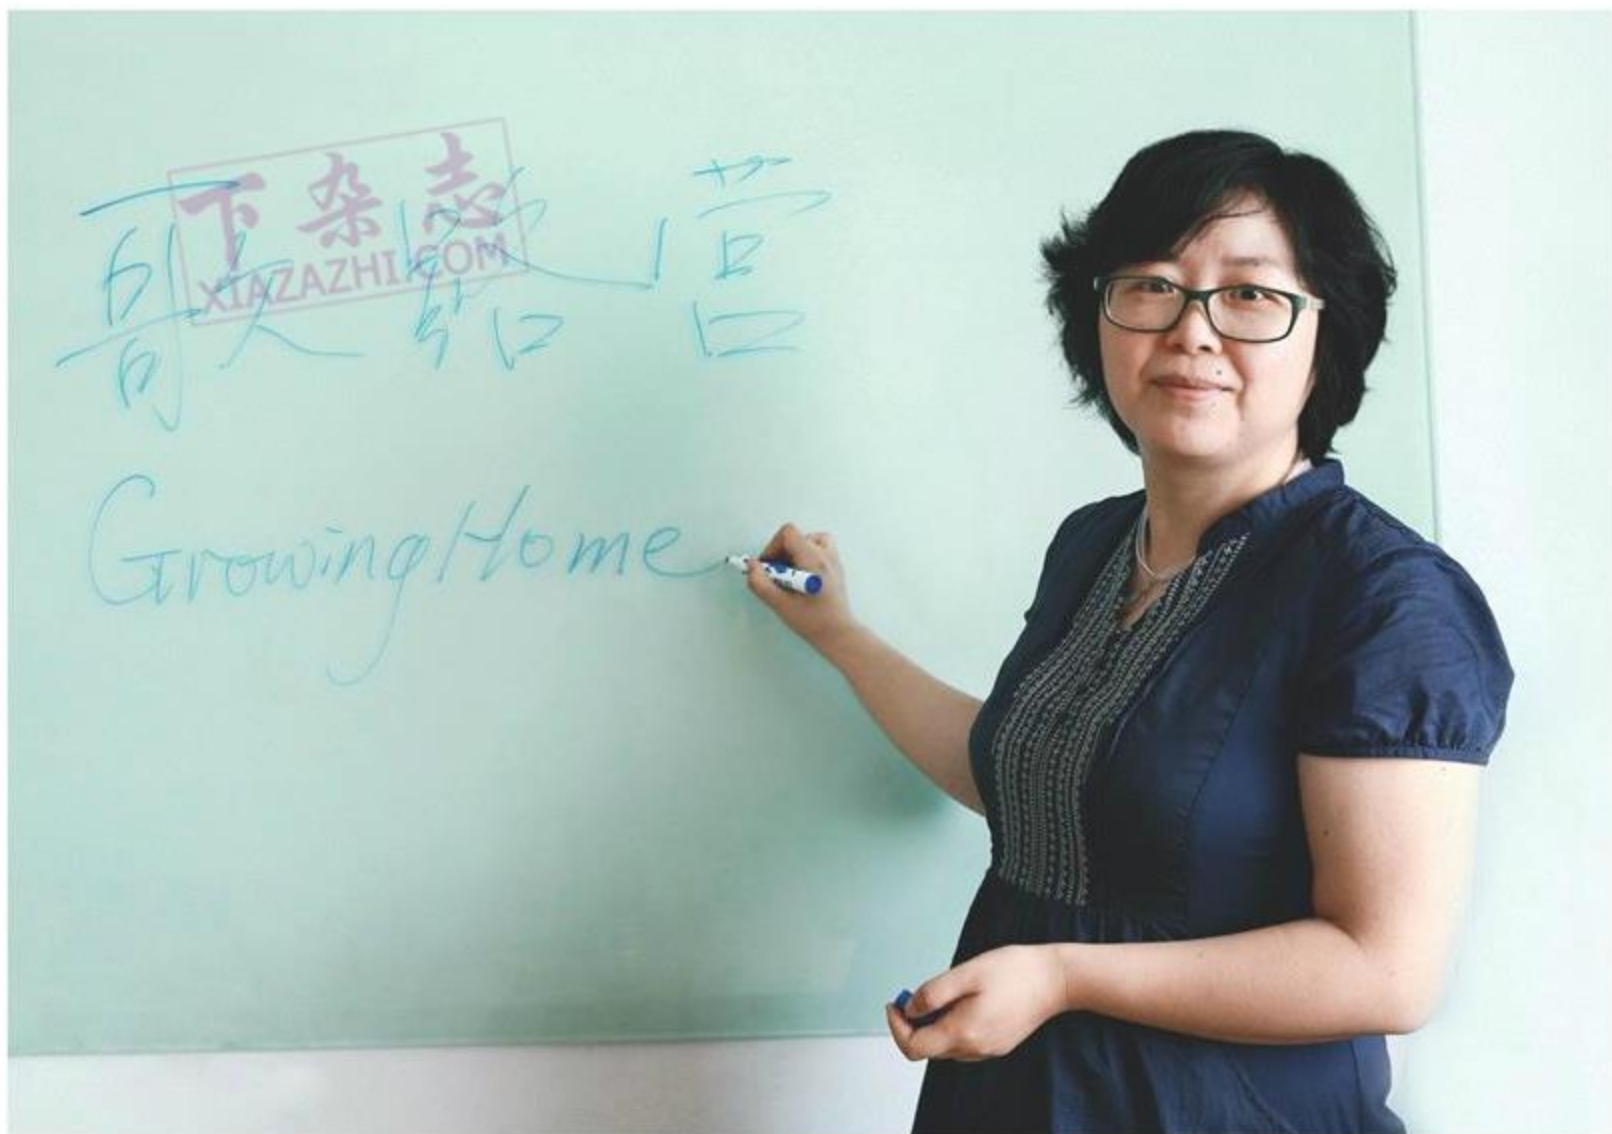 下杂志
XIAZAZHI.COM
歌路营
GrowingHome